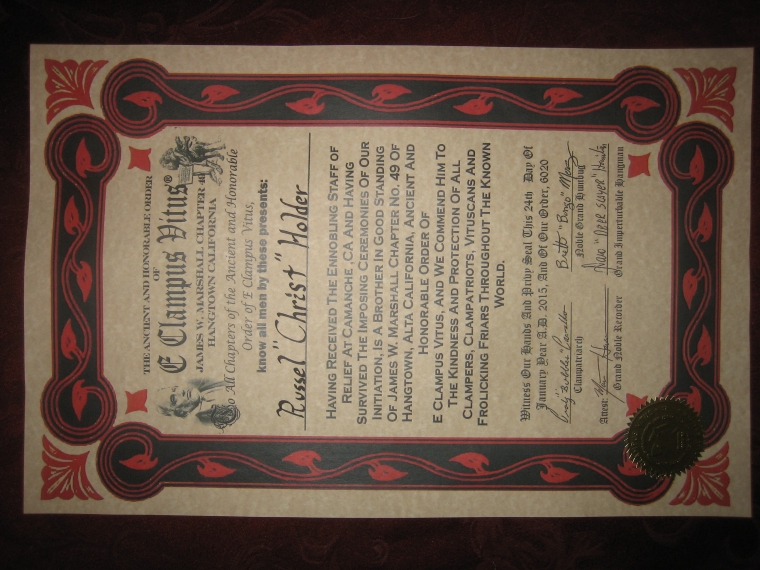 THE ANCIENT AND HONORABLE ORDER
OF
E Clampus Vitus®
JAMES W. MARSHALL CHAPTER 49
HANGTOWN CALIFORNIA
To All Chapters of the Ancient and Honorable
Order of E Clampus Vitus,
know all men by these presents:
Russel "Christ" Holder
HAVING RECEIVED THE ENNOBLING STAFF OF
RELIEF AT CAMANCHE, CA AND HAVING
SURVIVED THE IMPOSING CEREMONIES OF OUR
INITIATION, IS A BROTHER IN GOOD STANDING
OF JAMES W. MARSHALL CHAPTER NO. 49 OF
HANGTOWN, ALTA CALIFORNIA, ANCIENT AND
HONORABLE ORDER OF
E CLAMPUS VITUS, AND WE COMMEND HIM TO
THE KINDNESS AND PROTECTION OF ALL
CLAMPERS, CLAMPATRIOTS, VITUSCANS AND
FROLICKING FRIARS THROUGHOUT THE KNOWN
WORLD.
Witness Our Hands And Privy Seal This 24th Day Of
January Year A.D. 2015, And Of Our Order, 6020
Brett "Bongo"
Clampatriarch Noble Grand Humbug
Attest:
Grand Noble Recorder Grand Imperturbable Hangman